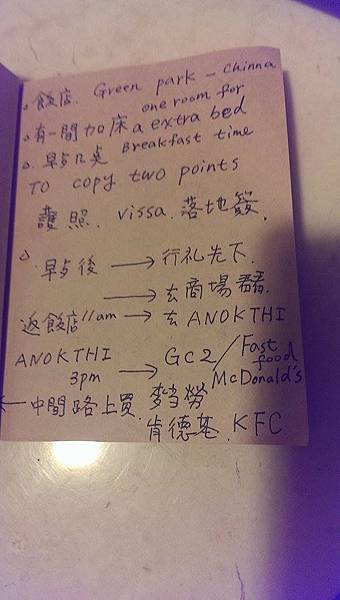 。飯店. Green park - Chinna
。有一間加床 one room for
a extra bed
。早歺几奌 Breakfast time
TO copy two points
護照. vissa. 落地簽.
△ 早歺後 → 行礼先下.
→ 去商場
返飯店 11am → 去 ANOKTHI
ANOKTHI 3pm → GC2/Fast food
McDonald's
← 中間路上買. 麥当勞
肯德基. KFC